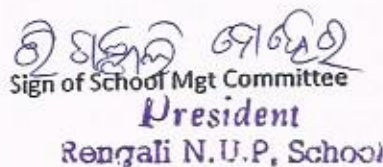 ଶ୍ରୀ ଗଙ୍ଗାଳି ମୋହିର
Sign of School Mgt Committee
President
Rengali N.U.P. School